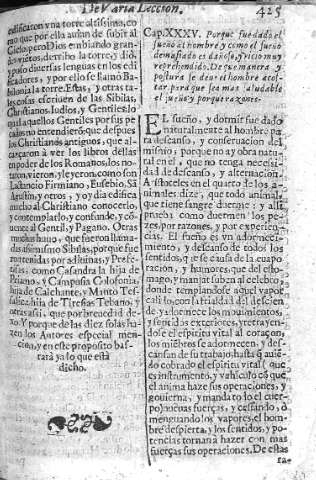 De Varia Leccion. 425
edificaron vna torre altissima, co
mo que por ella auian de subir al
Cielo, pero Dios embiando gran-
des vietos, derribo la torre, y dió,
y puso diuersas lenguas en los edi
ficadores, y por ello se llamó Ba-
bilonia la torre. Estas, y otras ta-
les cosas escriuen de las Sibilas,
Christianos, Iudios, y Gentiles: lo
qual aquellos Gentiles por sus pe
cados no entendieró: que despues
los Christianos antiguos, que al-
cançaron á ver los libros dellas
en poder de los Romanos, los no-
taron, vieron, y leyeron, como son
Lactancio Firmiano, Eusebio, Sā
Agustin, y otros, y oy dia edifica
mucho al Christiano conocerlo,
y contemplarlo, y confunde, y có-
uence al Gentil, y Pagano. Otras
muchas huuo, que fueron llama-
das assimismo Sibilas, porque fue
ron tenidas por adiuinas, y Profe-
tissas, como Casandra la hija de
Priamo, y Campusia Colofonia,
hija de Calchante, y Manto Te-
salica, hija de Tiresias Tebano, y
otras assi, que por breuedad de-
xo. Y porque de las diez solas ha-
zen los Autores especial men-
cion, y en este proposito bas-
tará ya lo que está
dicho.
Cap. XXXV. Porque fue dado el
sueño al hombre, y como el sueño
demasiado es dañoso, y vicio muy
reprehendido. De que manera, y
postura se deue el hombre acos-
tar para que sea mas saludable
el sueño, y porque razones.
EL sueño, y dormir fue dado
naturalmente al hombre pa
ra descanso, y conseruacion del
mismo, porque no ay obra natu-
ral en el, que no tenga necessi-
dad de descanso, y alternacion.
Aristoteles en el quarto de los a-
nimales dize, que todo animal,
que tiene sangre duerme: y alli
prueba como duermen los pe-
ces, por razones, y por experien-
cias. El sueño es vn adormeci-
miento, y descanso de todos los
sentidos, q̃ se causa de la euapo-
racion, y humores, que del esto-
mago, y manjar suben al celebro
donde templandose aquel vapor
calido, con la frialdad del descien
de, y adormece los mouimientos,
y sentidos exteriores, y retrayen-
dose el espiritu vital al coraçon,
los miẽbros se adormecen, y des-
cansan de su trabajo, hasta q̃ auiẽ-
do cobrado el espiritu vital (que
es instrumento, y vehiculo cõ que
el anima haze sus operaciones, y
gouierna, y manda todo el cuer-
po) nueuas fuerças, y cessando, ó
menguando los vapores, el hom-
bre despierta, y los sentidos, y po-
tencias tornan à hazer con mas
fuerças sus operaciones. De estas